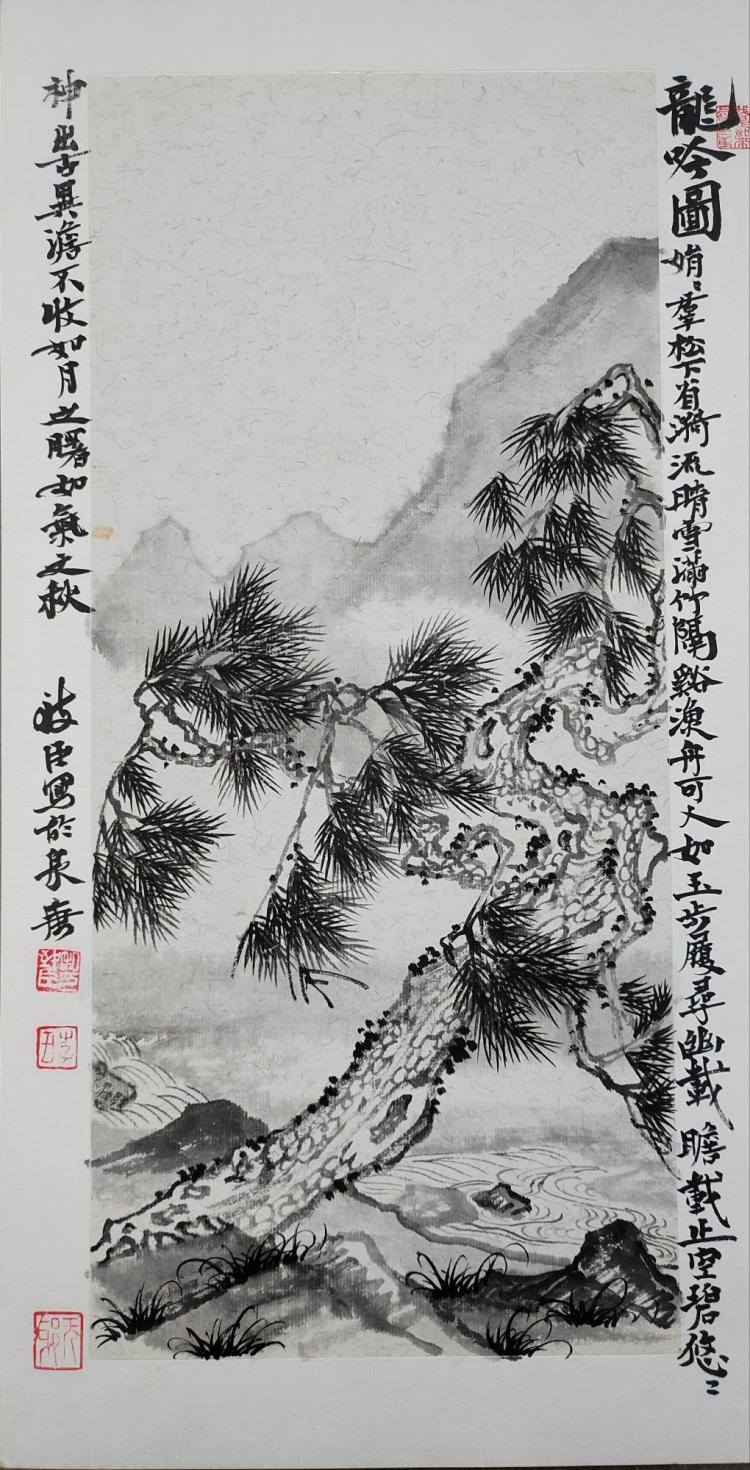 龍吟圖 娟〻羣松下有漪流晴雪滿竹隔谿漁舟可人如玉步履尋幽載瞻載止空碧悠〻
神出古異澹不收如月之曙如氣之秋 波臣寫於泉